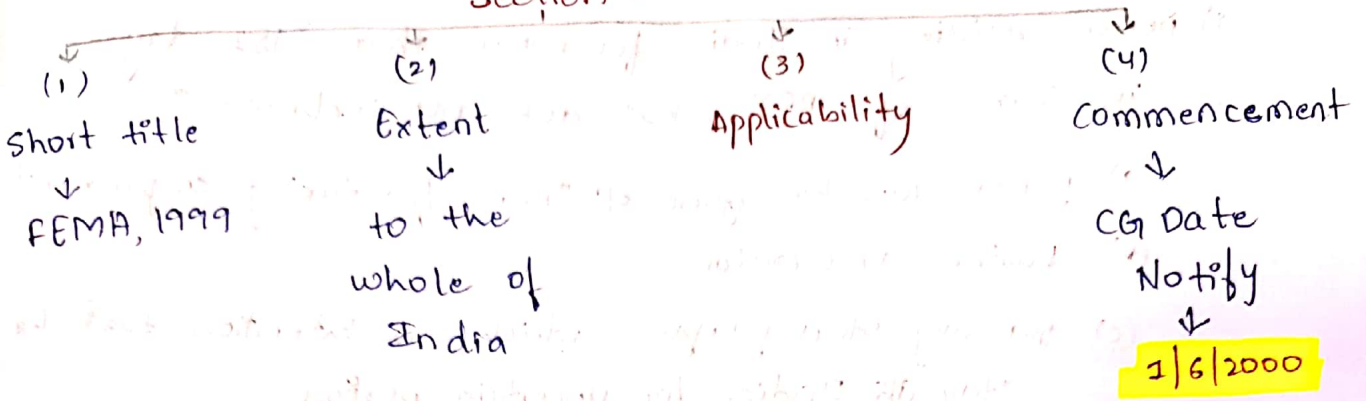 (1)
Short title
FEMA, 1999
(2)
Extent
to the
whole of
India
(3)
Applicability
(4)
Commencement
CG Date
Notify
1/6/2000